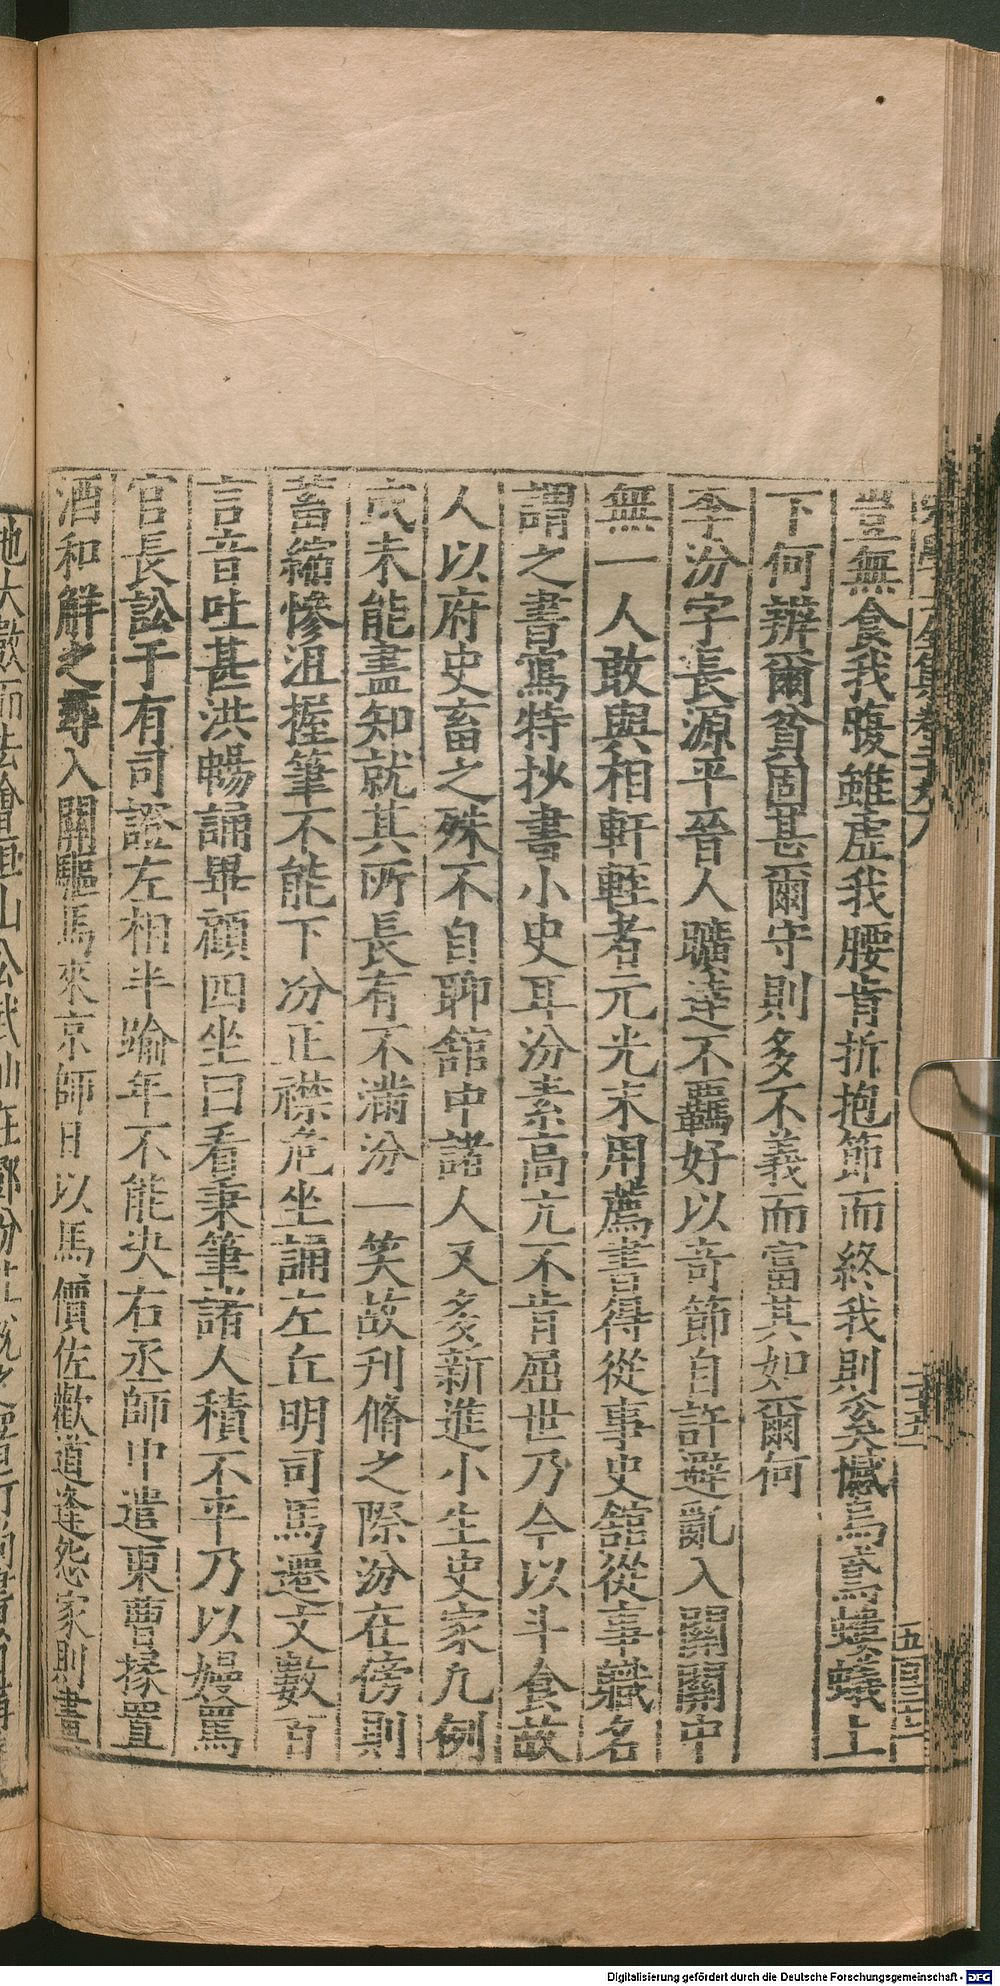 豈無食我腹雖虛我腰肯折抱節而終我則奚憾烏鳶螻蟻上
下何辨爾貧固甚爾守則多不義而富其如爾何
李汾字長源平晉人曠達不羈好以奇節自許避亂入關關中
無一人敢與相軒輊者元光末用薦書得從事史館從事職名
謂之書寫特抄書小史耳汾素高亢不肯屈世乃今以斗食故
人以府史畜之殊不自聊館中諸人又多新進小生史家凡例
或未能盡知就其所長有不滿汾一笑故刋脩之際汾在傍則
蓄縮慘沮握筆不能下汾正襟危坐誦左丘明司馬遷文數百
言音吐甚洪暢誦畢顧四坐曰看秉筆諸人積不平乃以嫚罵
官長訟于有司證左相半踰年不能決右丞師中遣東曹掾置
酒和解之尋入關驅馬來京師日以馬價佐歡道逢怨家則畫
Digitalisierung gefördert durch die Deutsche Forschungsgemeinschaft - DFG